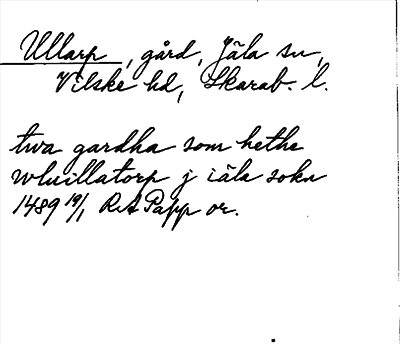 Ullarp, gård, Jäla sn,
Vilske hd, Skarab. l.
twa gardha som hethe
wluillatorp j iäla sokn
1489 19/1 RA Papp or.